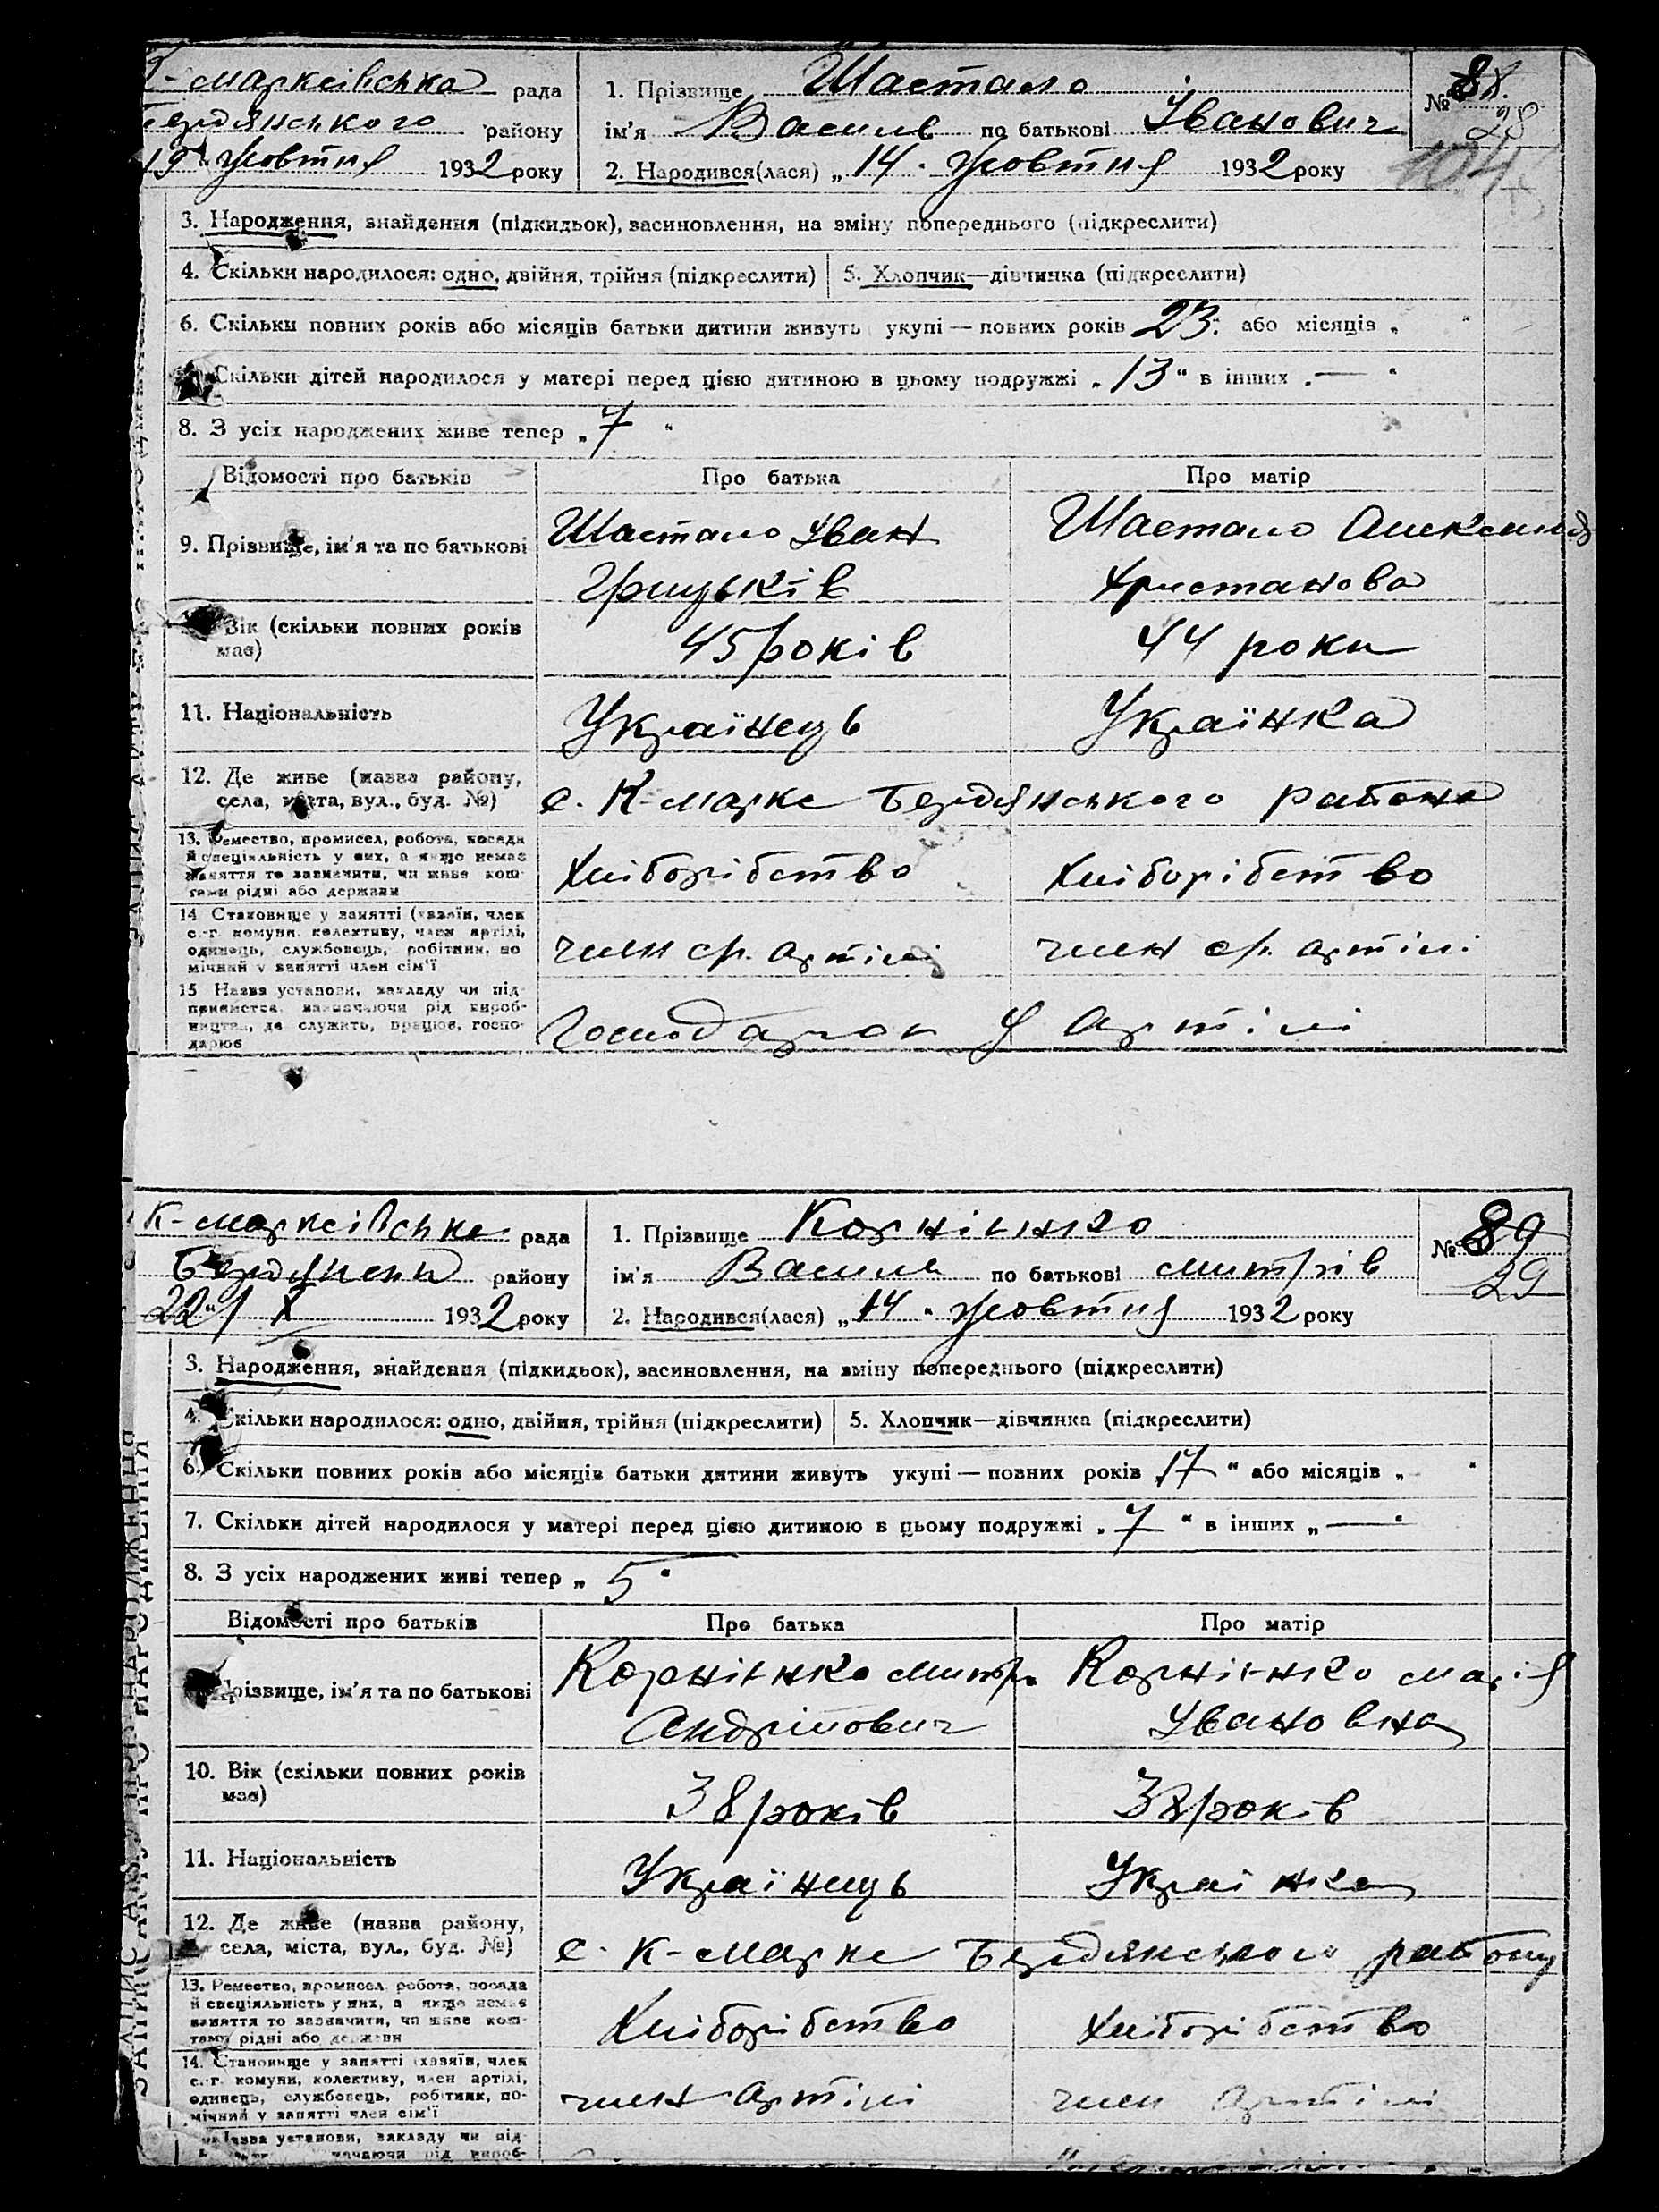 К-марксівська рада
Бердянського району
19 жовтня 1932 року
1. Прізвище Шастало
ім'я Василь по батькові Іванович
2. Народився(лася) „14" жовтня 1932 року
№ 88
28
104
3. Народження, знайдення (підкидьок), засиновлення, на зміну попереднього (підкреслити)
4. Скільки народилося: одно, двійня, трійня (підкреслити) 5. Хлопчик—дівчинка (підкреслити)
6. Скільки повних років або місяців батьки дитини живуть укупі — повних років 23. або місяців „ "
Скільки дітей народилося у матері перед цією дитиною в цьому подружжі „13" в інших „—"
8. З усіх народжених живе тепер „7"
Відомості про батьків Про батька Про матір
9. Прізвище, ім'я та по батькові Шастало Іван Шастало Александ
Грицьків Христанова
Вік (скільки повних років має) 45 років 44 роки
11. Національність Українець Українка
12. Де живе (назва району,
села, міста, вул., буд. №) с. К-маркс Бердянського района
13. Ремество, промисел, робота, посада
й спеціяльність у них, а якщо немає
заняття то зазначити, чи живе кош-
тами рідні або держави
Хліборібство Хліборібство
14 Становище у занятті (хазяїн, член
с.-г. комуни, колективу, член артілі,
одинець, службовець, робітник, по
мічний у занятті член сім'ї
член с/г. артілі член с/г. артілі
15 Назва установи, закладу чи під-
приємства, зазначаючи рід вироб-
ництва, де служить, працює, госпо-
дарює
Господарок у артілі
К-марксівська рада
Бердянський району
22/X 1932 року
1. Прізвище Корнієнко
ім'я Василь по батькові Митрів
2. Народився(лася) „14" жовтня 1932 року
№ 89
29
3. Народження, знайдення (підкидьок), засиновлення, на зміну попереднього (підкреслити)
4. Скільки народилося: одно, двійня, трійня (підкреслити) 5. Хлопчик—дівчинка (підкреслити)
6. Скільки повних років або місяців батьки дитини живуть укупі — повних років „17" або місяців „ "
7. Скільки дітей народилося у матері перед цією дитиною в цьому подружжі „7" в інших „—"
8. З усіх народжених живі тепер „5"
Відомості про батьків Про батька Про матір
Прізвище, ім'я та по батькові Корнієнко Митро Корнієнко Марія
Андрійович Івановна
10. Вік (скільки повних років має) 38 років 38 років
11. Національність Українець Українка
12. Де живе (назва району,
села, міста, вул., буд. №) с. К-маркс Бердянського району
13. Ремество, промисел, робота, посада
й спеціяльність у них, а якщо немає
заняття то зазначити, чи живе кош-
тами рідні або держави
Хліборібство Хліборібство
14. Становище у занятті (хазяїн, член
с.-г. комуни, колективу, член артілі,
одинець, службовець, робітник, по-
мічний у занятті член сім'ї
член артілі член артілі
Назва установи, закладу чи під-
зазначаючи рід вироб-
ЗАПИС АКТУ ПРО НАРОДЖЕННЯ